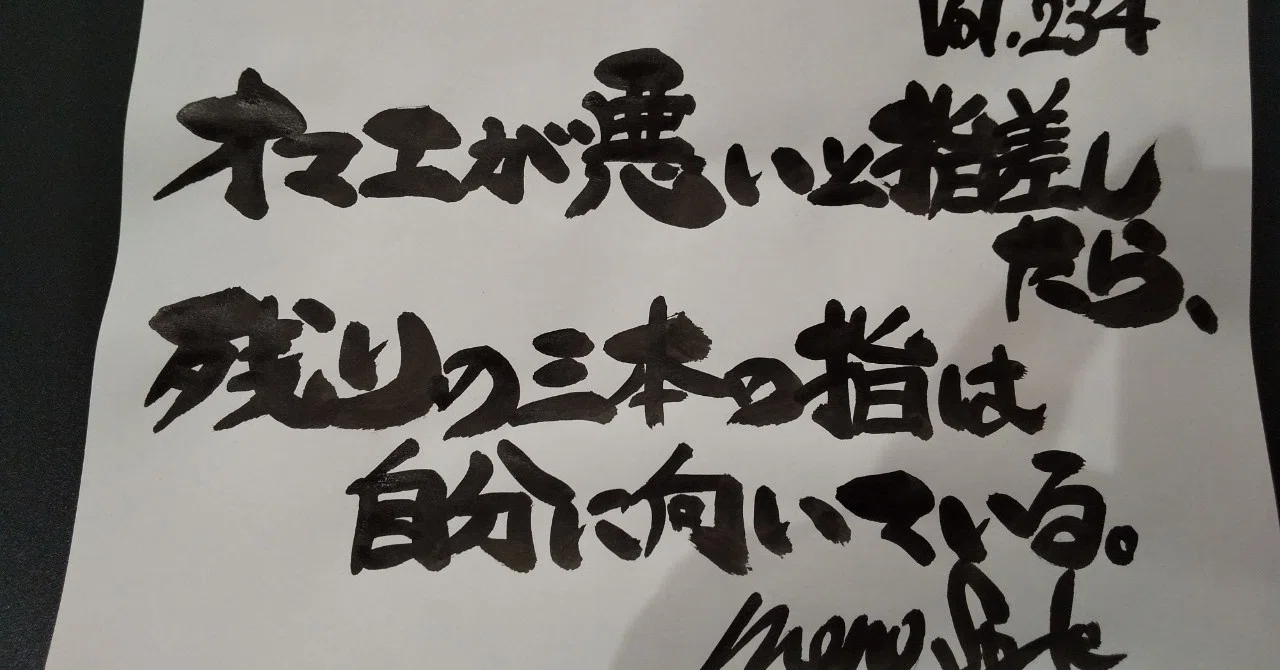 Vol.234
オマエが悪いと指差し
たら、
残りの三本の指は
自分に向いている。